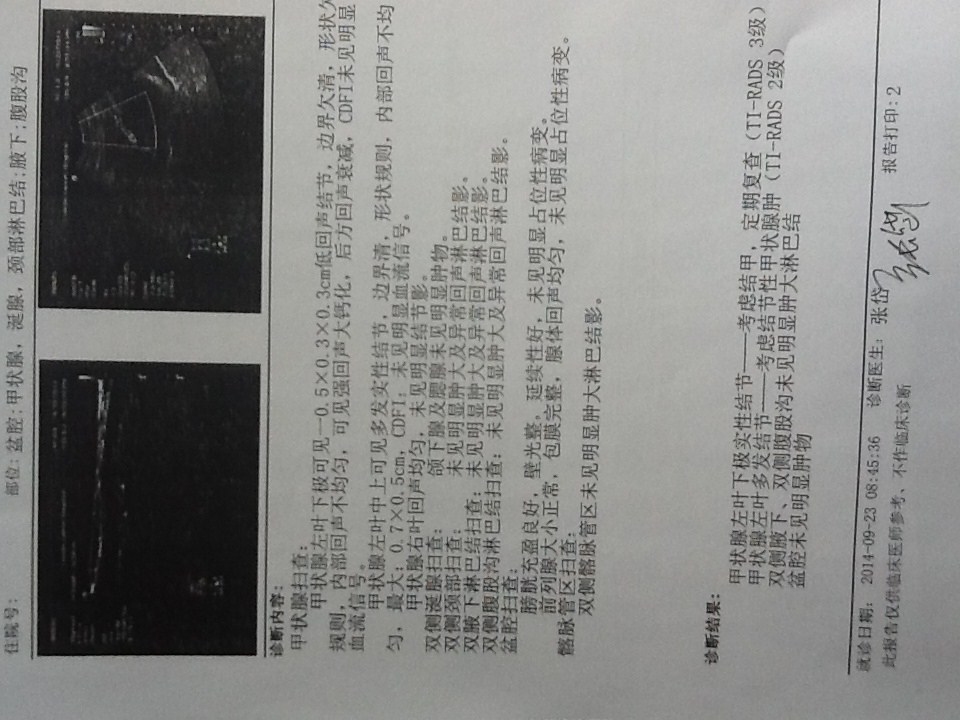 住院号: 部位: 盆腔;甲状腺, 涎腺, 颈部淋巴结;腋下;腹股沟
诊断内容:
甲状腺扫查:
甲状腺左叶下极可见一0.5×0.3×0.3cm低回声结节, 边界欠清, 形状欠
规则, 内部回声不均匀, 可见强回声大钙化, 后方回声衰减, CDFI未见明显
血流信号。
甲状腺左叶中上可见多发实性结节, 边界清, 形状规则, 内部回声不均
匀, 最大: 0.7×0.5cm, CDFI: 未见明显血流信号。
甲状腺右叶回声均匀, 未见明显结节影。
双侧涎腺扫查: 颌下腺及腮腺未见明显肿物。
双侧颈部扫查: 未见明显肿大及异常回声淋巴结影。
双腋下淋巴结扫查: 未见明显肿大及异常回声淋巴结影。
双侧腹股沟淋巴结扫查: 未见明显肿大及异常回声淋巴结影。
盆腔扫查:
膀胱充盈良好, 壁光整, 延续性好, 未见明显占位性病变。
前列腺大小正常, 包膜完整, 腺体回声均匀, 未见明显占位性病变。
髂脉管区扫查:
双侧髂脉管区未见明显肿大淋巴结影。
诊断结果:
甲状腺左叶下极实性结节——考虑结甲, 定期复查 (TI-RADS 3级)
甲状腺左叶多发结节——考虑结节性甲状腺肿 (TI-RADS 2级)
双侧腋下、双侧腹股沟未见明显肿大淋巴结
盆腔未见明显肿物
就诊日期: 2014-09-23 08:45:36 诊断医生: 张岱 报告打印:2
此报告仅供临床医师参考、不作临床诊断